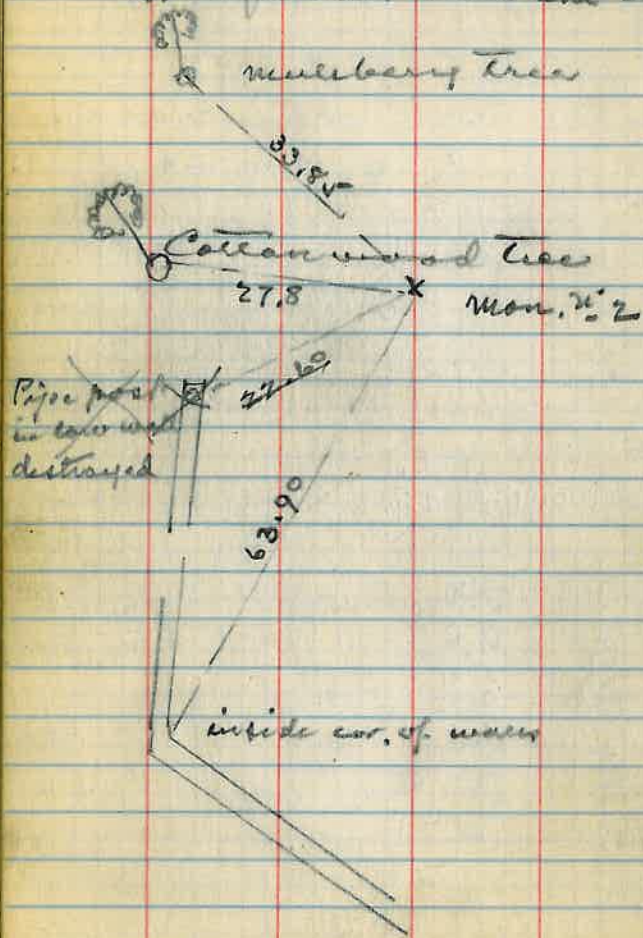 mulberry tree
33.85
Cottonwood tree
27.8
Mon. Nº 2
Pipe post
in cow
destroyed
63.90
inside cor. of